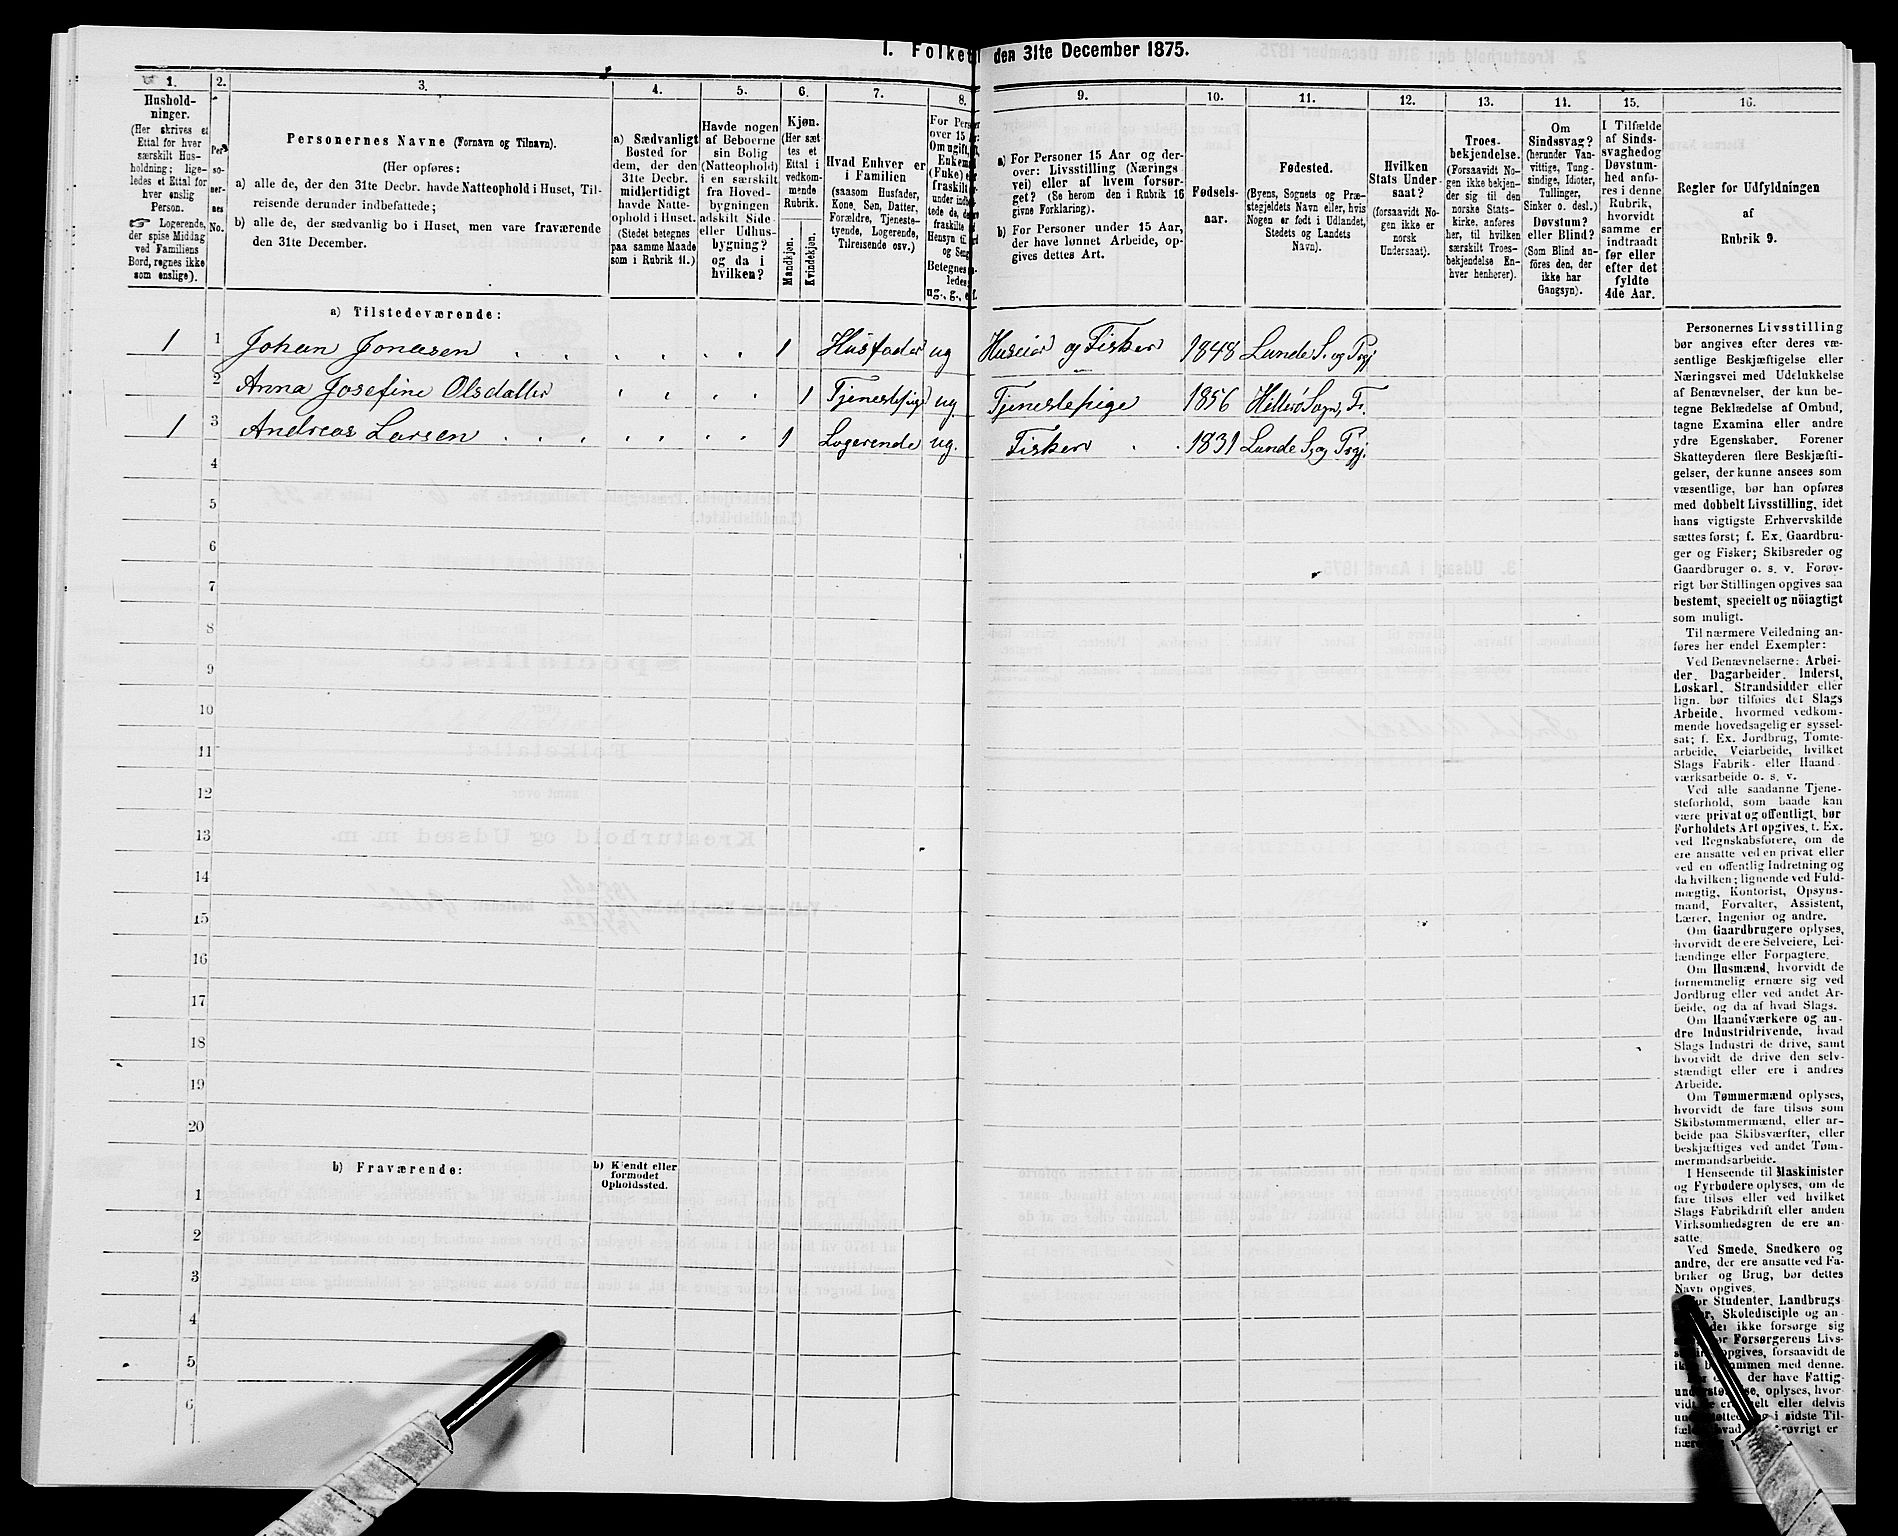 1. Folket den 31te December 1875.
1. 2. 3. 4. 5. 6. 7. 8. 9. 10. 11. 12. 13. 14. 15. 16.
Hushold-
ninger.
(Her skrives et
Ettal for hver
særskilt Hus-
holdning; lige-
ledes et Ettal for
hver enslig
Person.
☞ Logerende,
der spise Middag
ved Familiens
Bord, regnes ikke
som enslige).
Per-
soner-
nes
No.
Personernes Navne (Fornavn og Tilnavn).
(Her opføres:
a) alle de, der den 31te Decbr. havde Natteophold i Huset, Til-
reisende derunder indbefattede;
b) alle de, der sædvanlig bo i Huset, men vare fraværende
den 31te December.
a) Sædvanligt
Bosted for
dem, der den
31te Decbr.
midlertidigt
havde Natte-
ophold i Huset.
(Stedet betegnes
paa samme Maade
som i Rubrik 11.)
Havde nogen
af Beboerne
sin Bolig
(Natteophold)
i en særskilt
fra Hoved-
bygningen
adskilt Side-
eller Udhus-
bygning?
og da i
hvilken?
Kjøn.
(Her sæt-
tes et
Ettal i
vedkom-
mende
Rubrik.
Mandkjøn.
Kvindekjøn.
Hvad Enhver er
i Familien
(saasom Husfader,
Kone, Søn, Datter,
Forældre, Tjeneste-
tyende, Logerende,
Tilreisende osv.)
For Pers
over 15 A
Om ugift,
Enkem
(Fuke)
fraskilt
under indb
tede de, de
fraskilte
Hensyn til
og Seng
Betegnes
ledes:
ug., g., e. f.
a) For Personer 15 Aar og der-
over: Livsstilling (Nærings
vei) eller af hvem forsør-
get? (Se herom den i Rubrik 16
givne Forklaring).
b) For Personer under 15 Aar,
der have lønnet Arbeide, op-
gives dettes Art.
Fødsels-
aar.
Fødested.
(Byens, Sognets og Præ-
stegjeldets Navn eller, hvis
Nogen er født i Udlandet,
Stedets og Landets
Navn).
Hvilken
Stats Under-
saat?
(forsaavidt No-
gen ikke er
norsk
Undersaat).
Troes-
bekjendelse.
(Forsaavidt No-
gen ikke bekjen-
der sig til den
norske Stats-
kirke, anføres
her, til hvilken
særskilt Troes-
bekjendelse En-
hver henhører).
Om
Sindssvag?
(herunder Van-
vittige, Tung-
sindige, Idioter,
Tullinger,
Sinker o. desl.)
Døvstum?
eller Blind?
(Som Blind an-
føres den, der
ikke har
Gangsyn).
I Tilfælde
af Sinds-
svaghed og
Døvstum-
hed anfø-
res i denne
Rubrik,
hvorvidt
samme er
indtraadt
før eller
efter det
fyldte
4de Aar.
Regler for Udfyldningen
af
Rubrik 9.
a) Tilstedeværende:
1 1 Johan Jonasen 1 Husfader ug Huseier og Fisker 1848 Lunde S. og Prgj.
2 Anna Josefine Olsdatter 1 Tjenestepige ug. Tjenestepige 1856 Hitterø Sogn,
1 3 Andreas Larsen 1 Logerende ug. Fisker 1831 Lunde S. og Prgj.
4
5
6
7
8
9
10
11
12
13
14
15
16
17
18
19
20
b) Fraværende: b) Kjendt eller
formodet
Opholdssted.
1
2
3
4
5
6
Personernes Livsstilling
bør angives efter deres væ-
sentlige Beskjæftigelse eller
Næringsvei med Udelukkelse
af Benævnelser, der kun be-
tegne Beklædelse af Ombud,
tagne Examina eller andre
ydre Egenskaber. Forener
Skatteyderen flere Beskjæfti-
gelser, der kunne ansees som
væsentlige, bør han opføres
med dobbelt Livsstilling, idet
hans vigtigste Erhvervskilde
sættes først; f. Ex. Gaardbru-
ger og Fisker; Skibsreder og
Gaardbruger o. s. v. Forøv-
rigt bør Stillingen opgives saa
bestemt, specielt og nöiagtigt
som muligt.
Til nærmere Veiledning an-
føres her endel Exempler:
Ved Benævnelserne: Arbei-
der, Dagarbeider, Inderst,
Løskarl, Strandsidder eller
lign. bør tilføies det Slags
Arbeide, hvormed vedkom-
mende hovedsagelig er syssel-
sat; f. Ex. Jordbrug, Tomte-
arbeide, Veiarbeide, hvilket
Slags Fabrik- eller Haand
værksarbeide o. s. v.
Ved alle saadanne Tjene-
steforhold, som baade kan
være privat og offentligt, bør
Forholdets Art opgives, t. Ex.
ved Regnskabsførere, om de
ere ansatte ved en privat eller
ved en offentlig Indretning og
da hvilken; lignende ved Fuld-
mægtig, Kontorist, Opsyns-
mand, Forvalter, Assistent,
Lærer, Ingeniør og andre.
Om Gaardbrugere oplyses,
hvorvidt de ere Selveiere, Lei-
lændinge eller Forpagtere.
Om Husmænd, hvorvidt de
fornemmelig ernære sig ved
Jordbrug eller ved andet Ar-
beide, og da af hvad Slags.
Om Haandværkere og an-
dre Industridrivende, hvad
Slags Industri de drive, samt
hvorvidt de drive den selv-
stændigt eller ere i andres
Arbeide.
Om Tømmermænd oplyses,
hvorvidt de fare tilsøs som
Skibstømmermænd, eller ar-
beide paa Skibsværfter, eller
beskjæftiges ved andet Tøm-
mermandsarbeide.
I Henseende til Maskinister
og Fyrbødere oplyses, om de
fare tilsøs eller ved hvilket
Slags Fabrikdrift eller anden
Virksomhedsgren de ere an-
satte.
Ved Smede, Snedkere og
andre, der ere ansatte ved Fa-
briker og Brug, bør dettes
Navn opgives.
Studenter, Landbrugs
Skoledisciple og an-
ikke forsørge sig
Forsørgerens Livs-
opgives, forsaavidt de
med denne.
der have Fattig-
oplyses, hvor-
eller delvis
i sidste Til-